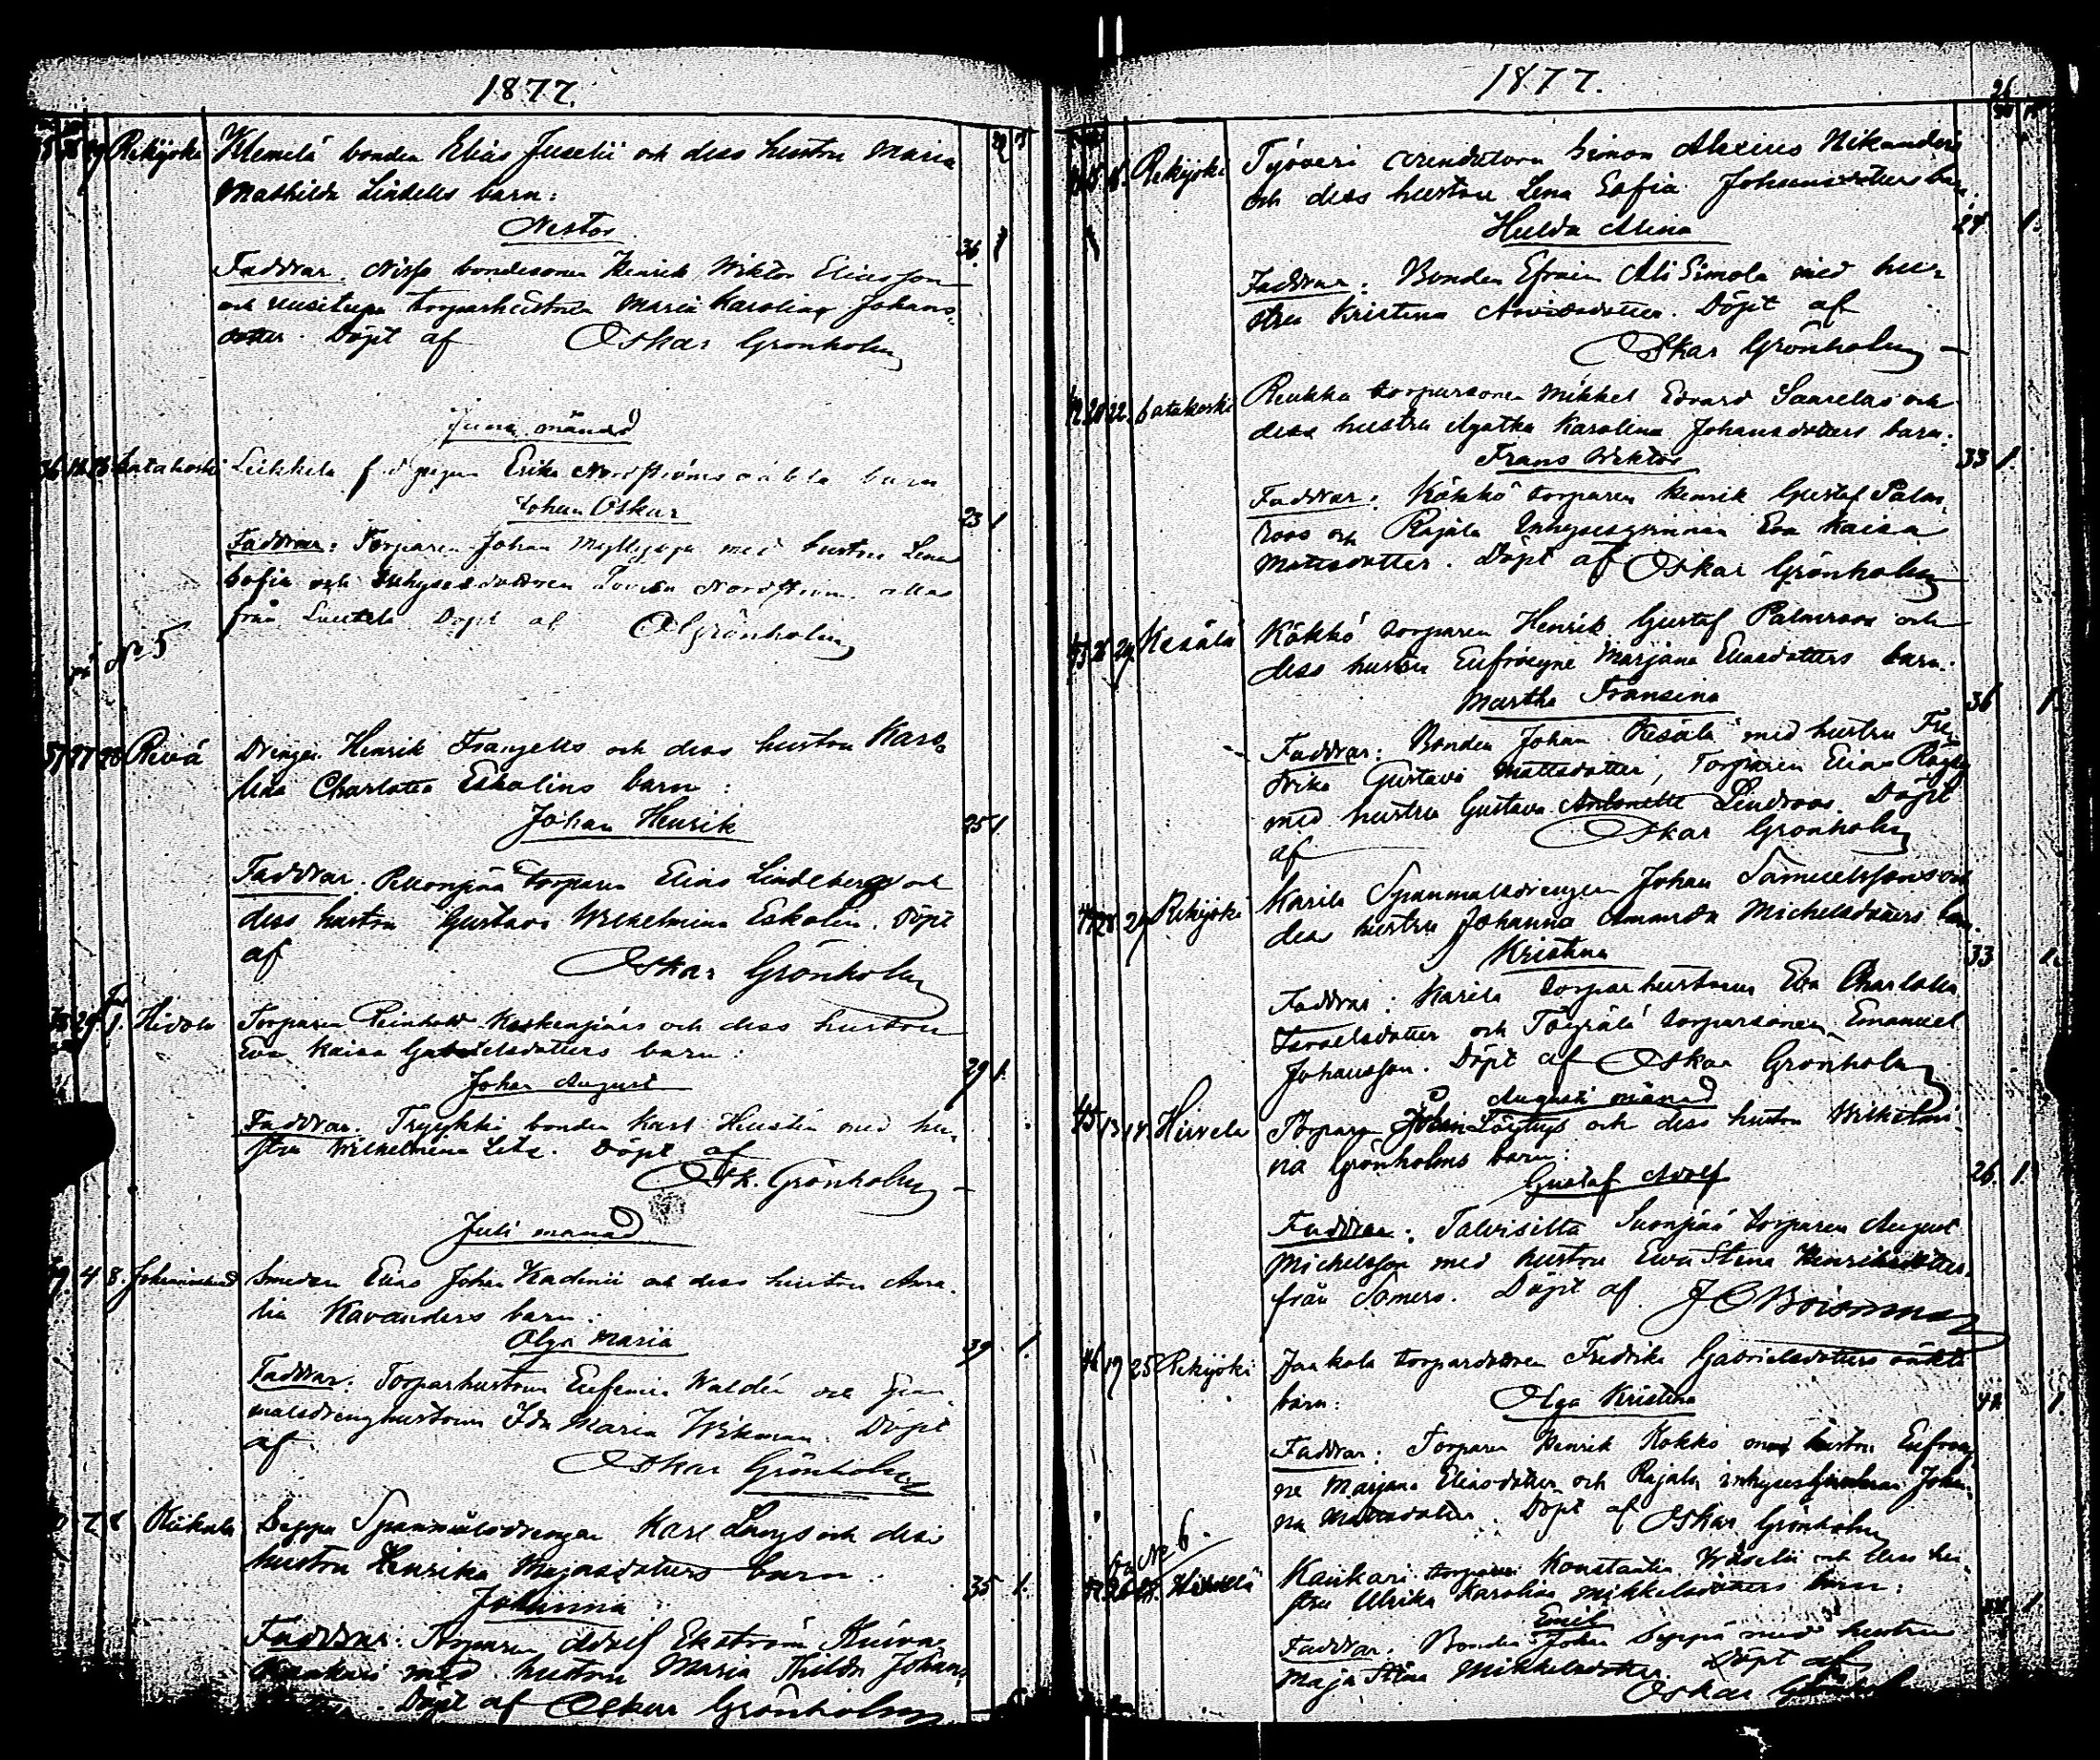 1877.
Rekijoki Klemelä bonden Elias Juselii och dess hustru Maria
Mathilda Lindells barn:
Nestor
36. 1
Faddrar. Nisse bondesonen Henrik Wiktor Eliasson
och torparhustrun Maria Karolina Johans-
dotter. Döpt af Oskar Grönholm
Juni månad
36 Satakoski Leikkola pigan Erika Nordströms oäkta barn
Johan Oskar
23 1
Faddrar: Torparen Johan Myllyoja med hustru Lena
Sofia och Inhysesdottren Lovisa Nordström. alla
från Döpt af O Grönholm
No 5
37 27 28 Reivä Drengen Henrik Frangells och dess hustru Karo-
lina Charlotta Eskolins barn:
Johan Henrik
25 1
Faddrar. Torparen Elias Lindeberg och
dess hustru Gustava Wilhelmina Eskolin. Döpt
af
Oskar Grönholm
29 1. Hirvola Torparen Reinhold Koskenpääs och dess hustru
Eva Kaisa Gabrielsdotters barn:
Johan August
39 1.
Faddrar. Tryykki bonden Karl Hensten med hu-
stru Wilhelmina Döpt af
Osk. Grönholm
Juli månad
4 8. Smeden Elias Johan Kadenii och dess hustru Ama-
lia Kavanders barn:
Olga Maria
39 1.
Faddrar: Torparhustrun Eufemia Waldén och Span-
målsdrenghustrun Ida Maria Wikman. Döpt
af
Oskar Grönholm
7 8 Kiikala Seppä Spanmålsdrengen Karl Långs och dess
hustru Henrika dotters barn.
Johanna
35 1.
Faddrar: Torparen Adolf Ekström Kuiva-
med hustru Maria Thilda Johans-
Döpt af Oskar Grönholm
1877.
26
Rekijoki Työväri arendatorn Simon Alexius Nikanders
och dess hustru Lena Sofia Johansdotters barn.
Hulda Alina
24 1.
Faddrar: Bonden Efraim Ali Simola med hu-
stru Kristina Arvidsdotter. Döpt af
Oskar Grönholm
42 20 22. Satakoski Reukka torparsonen Mikkel Edvard Saarelas och
dess hustru Agatha Karolina Johansdotters barn.
Frans Wiktor
33 1.
Faddrar: Kökkö torparen Henrik Gustaf Palm-
roos och Rajala Inhysesqvinnan Eva Kaisa
Mattsdotter. Döpt af Oskar Grönholm
43 26 29. Kesälä Kökkö torparen Henrik Gustaf Palmroos och
dess hustru Eufrosyne Marjana Eliasdotters barn.
Martha Fransina
36 1.
Faddrar: Bonden Johan Kesälä med hustru Fre-
drika Gustava Mattsdotter, Torparen Elias
med hustru Gustava Antonette Lindroos. Döpt
af
Oskar Grönholm
44 28 29 Rekijoki Karila Spanmålsdrengen Johan Samuelssons och
dess hustru Johanna Amanda Michelsdotters barn.
Kristina
33 1.
Faddrar: Karila torparhustrun Eva Charlotta
Israelsdotter och torparsonen Emanuel
Johansson. Döpt af Oskar Grönholm
Augusti månad
45 13 14. Hirvelä Torparen Johan och dess hustru Wilhelmi-
na Grönholms barn:
Gustaf Adolf
26. 1.
Faddrar: Talvisilta Suonpää torparen August
Michelsson med hustru Eva Stina Henriksdotter
från Somero. Döpt af J O Boisman
46 19 25 Rekijoki Jaakola torpardottren Fredrika Gabrielsdotters oäkta
barn:
Olga Kristina
1.
Faddrar: Torparen Henrik Kökkö med hustru Eufrosy-
ne Marjana Eliasdotter och Rajala inhyseqvinnan Johan-
na Mattsdotter. Döpt af Oskar Grönholm
No 6.
47 26 Hirvelä Kankari torparen Konstantin och dess hu-
stru Ulrika Karolina Mikkelsdotters barn:
Emil
1.
Faddrar. Bonden Johan Seppä med hustru
Maja Stina Mikkelsdotter. Döpt af
Oskar